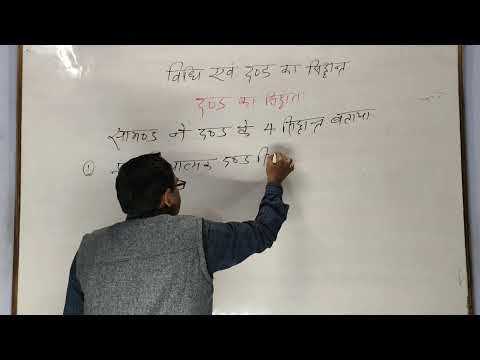 विधि एवं दण्ड का सिद्धान्त
दण्ड का सिद्धांत
ने दण्ड के 4 सिद्धान्त बताया
① त्मक दण्ड